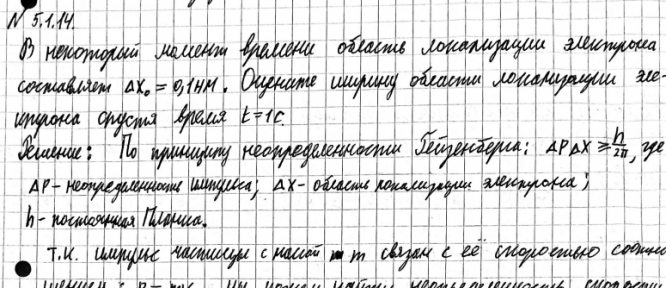 N 5.1.14.
В некоторый момент времени область локализации электрона
составляет ΔX₀ = 0,1 нм. Оцените ширину области локализации эле-
ктрона спустя время t = 1с.
Решение: По принципу неопределенности Гейзенберга: ΔPΔX ≥ h/2π, где
ΔP - неопределенность импульса; ΔX - область локализации электрона;
h - постоянная Планка.
Т.к. импульс частицы с массой m связан с её скоростью
мы можем найти неопределенность скорости